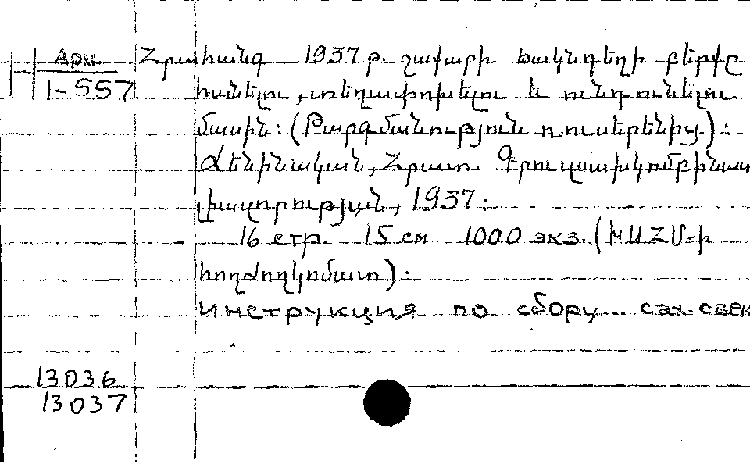 Հրահանգ 1937 թ. շաքարի ճակնդեղի բերքը
հանելու, տեղափոխելու և ունդունելու
մասին: (Թարգմանություն ռուսերենից):
Լենինական, Հրատ.
1937.
16 стр. 15 см 1000 экз. (ՀՍԽՀ-ի
հողժողկոմատ):
Инструкция по сбору... сах. свек
1-557
13036
13037